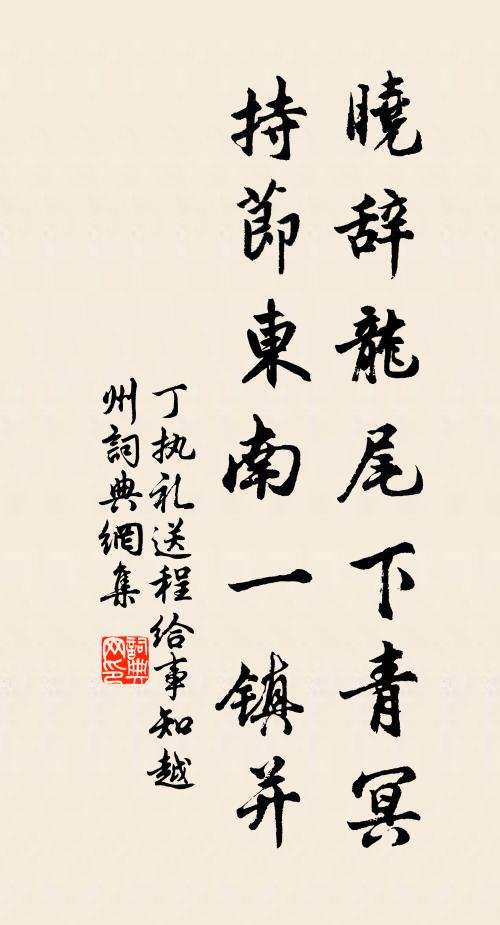 曉辞龍尾下青冥
持節東南一鎮并
丁执礼送程给事知越
州詞典網集
詞典
网印